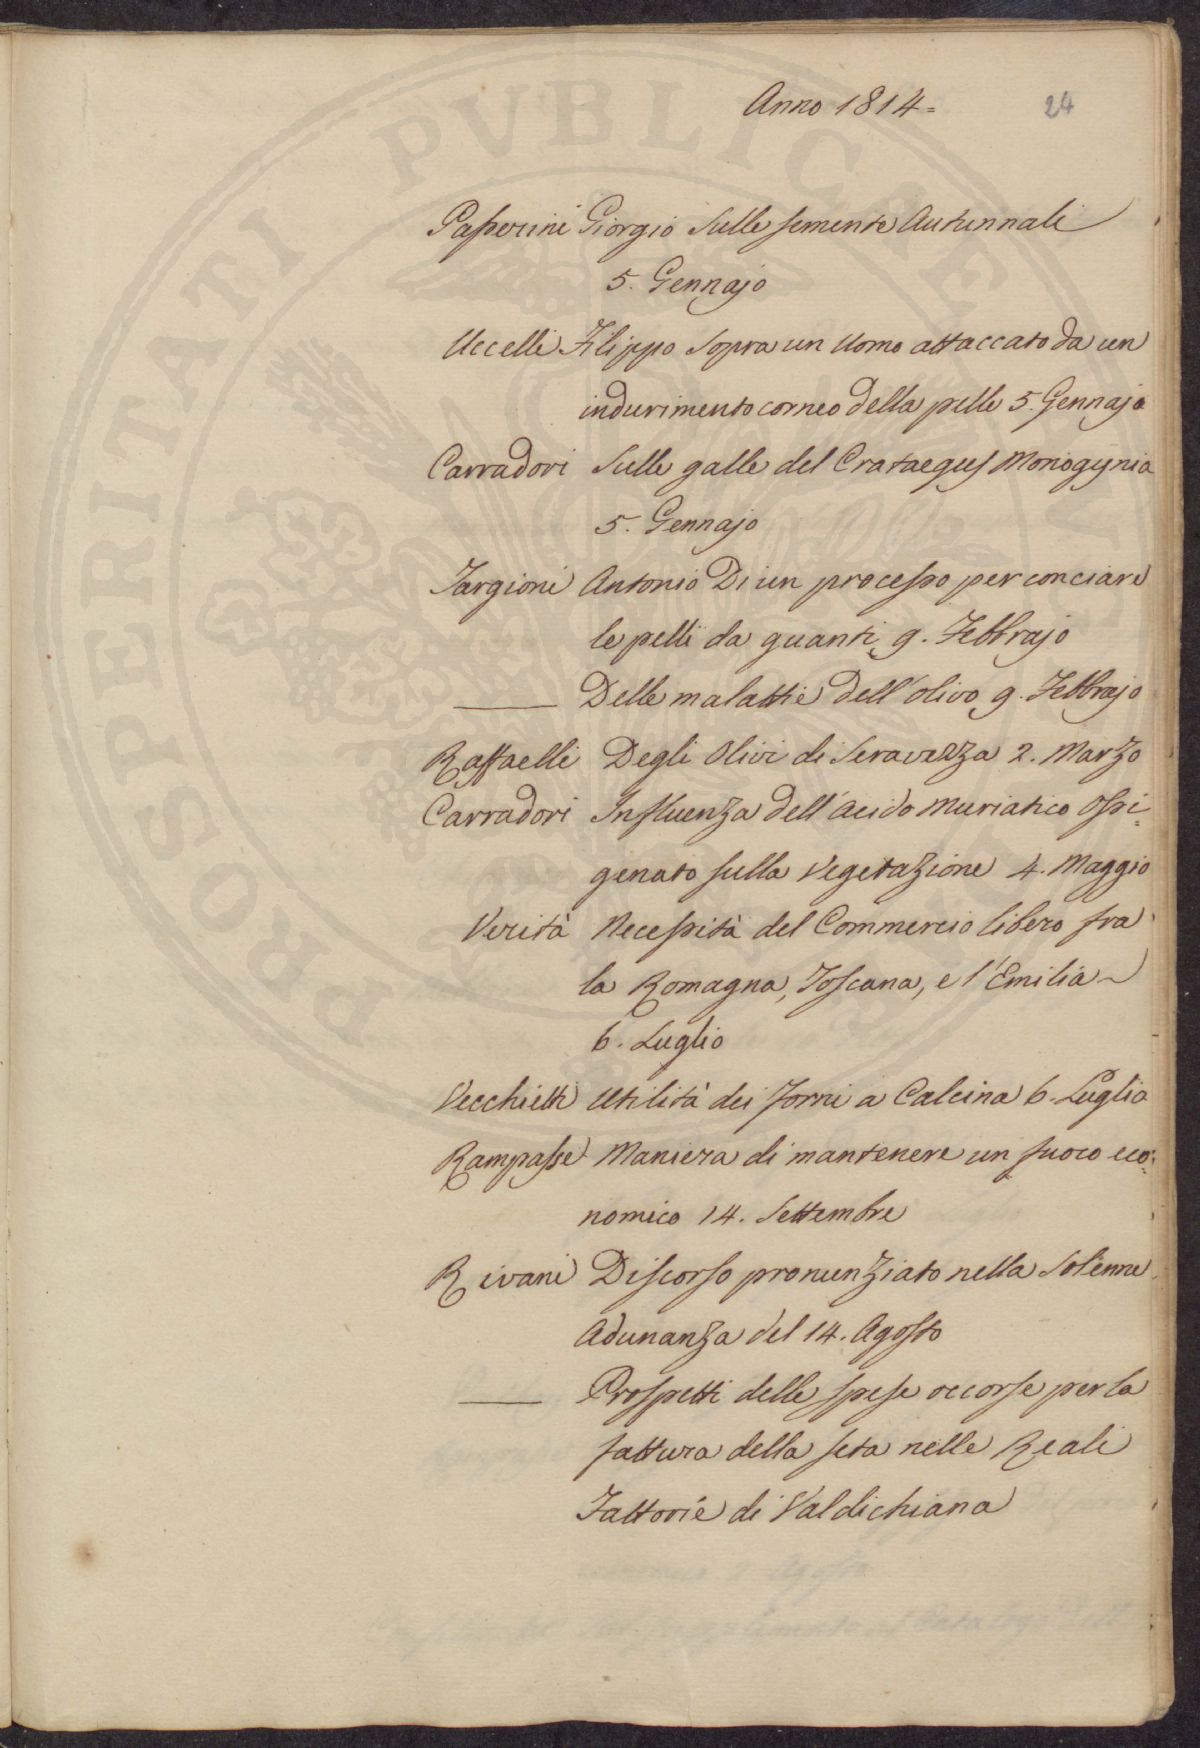 Anno 1814= 24
Passerini Giorgio Sulle semente Autunnali
5. Gennajo
Uccelli Filippo Sopra un Uomo attaccato da un
indurimento corneo della pelle 5. Gennajo
Carradori Sulle galle del Crataegus Monogynia
5. Gennajo
Targioni Antonio Di un processo per conciare
le pelli da guanti 9. Febbrajo
——— Delle malattie dell'olivo 9. Febbrajo
Raffaelli Degli Olivi di Seravezza 2. Marzo
Carradori Influenza dell'acido Muriatico Ossi=
genato sulla Vegetazione 4. Maggio
Verità Necessità del Commercio libero fra
la Romagna, Toscana, e l'Emilia
6. Luglio
Vecchietti Utilità dei Forni a Calcina 6. Luglio
Rampasse Maniera di mantenere un fuoco eco=
nomico 14. Settembre
Rivani Discorso pronunziato nella Solenne
Adunanza del 14. Agosto
——— Prospetti delle spese occorse per la
fattura della seta nelle Reali
Fattorie di Valdichiana
PROSPERITATI PVBLICAE